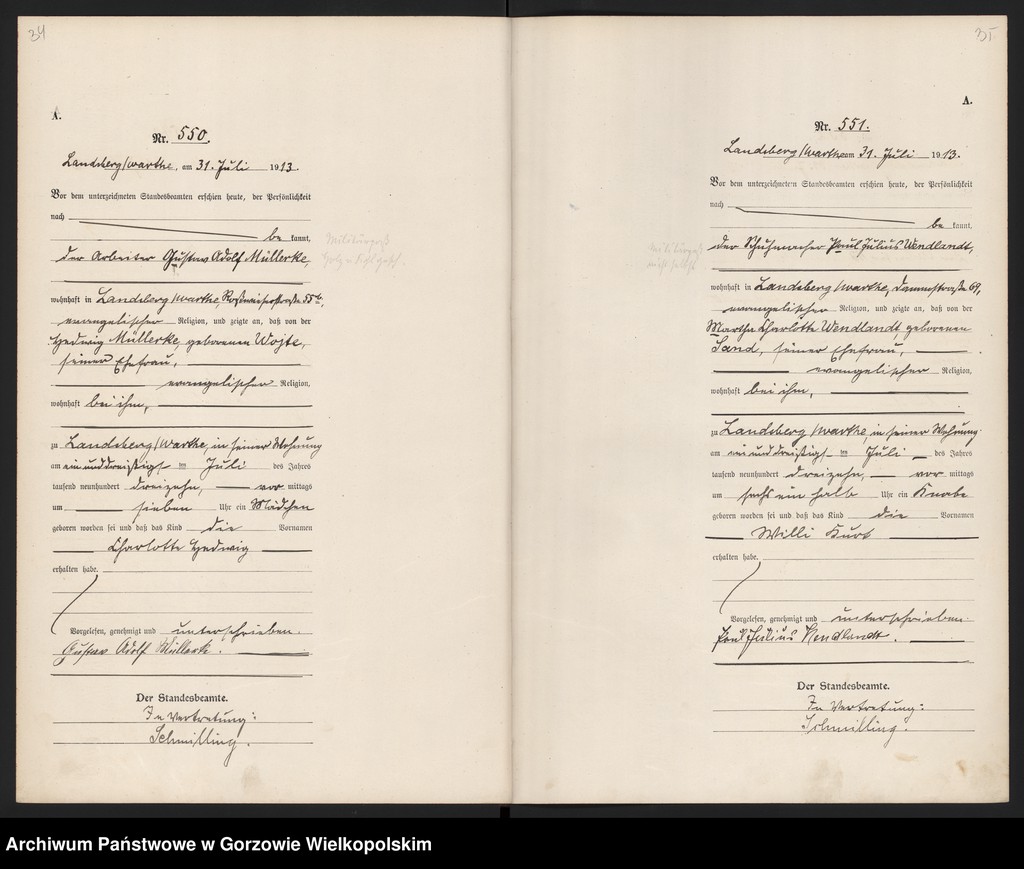 34
A.
Nr. 550.
Landsberg/Warthe, am 31. Juli 1913.
Vor dem unterzeichneten Standesbeamten erschien heute, der Persönlichkeit
nach
be kannt,
der Arbeiter Gustav Adolf Müllerke,
wohnhaft in Landsberg/Warthe,
evangelischer Religion, und zeigte an, daß von der
Hedwig Müllerke, geborenen Wojte,
seiner Ehefrau,
evangelischer Religion,
wohnhaft bei ihm,
zu Landsberg/Warthe, in seiner Wohnung
am einunddreißigsten Juli des Jahres
tausend neunhundert dreizehn, vor mittags
um sieben Uhr ein Mädchen
geboren worden sei und daß das Kind die Vornamen
Charlotte Hedwig
erhalten habe.
Vorgelesen, genehmigt und unterschrieben.
Gustav Adolf Müllerke.
Der Standesbeamte.
In Vertretung:
Schmilling.
35
A.
Nr. 551.
Landsberg/Warthe am 31. Juli 1913.
Vor dem unterzeichneten Standesbeamten erschien heute, der Persönlichkeit
nach
be kannt,
der Schuhmacher Paul Julius Wendlandt,
wohnhaft in Landsberg/Warthe, Dammstraße 69,
evangelischer Religion, und zeigte an, daß von der
Martha Charlotte Wendlandt, geborenen
Sand, seiner Ehefrau,
evangelischer Religion,
wohnhaft bei ihm,
zu Landsberg/Warthe, in seiner Wohnung
am einunddreißigsten Juli des Jahres
tausend neunhundert dreizehn, vor mittags
um sechs ein halb Uhr ein Knabe
geboren worden sei und daß das Kind die Vornamen
Willi Kurt
erhalten habe.
Vorgelesen, genehmigt und unterschrieben.
Paul Julius Wendlandt.
Der Standesbeamte.
In Vertretung:
Schmilling.
Archiwum Państwowe w Gorzowie Wielkopolskim